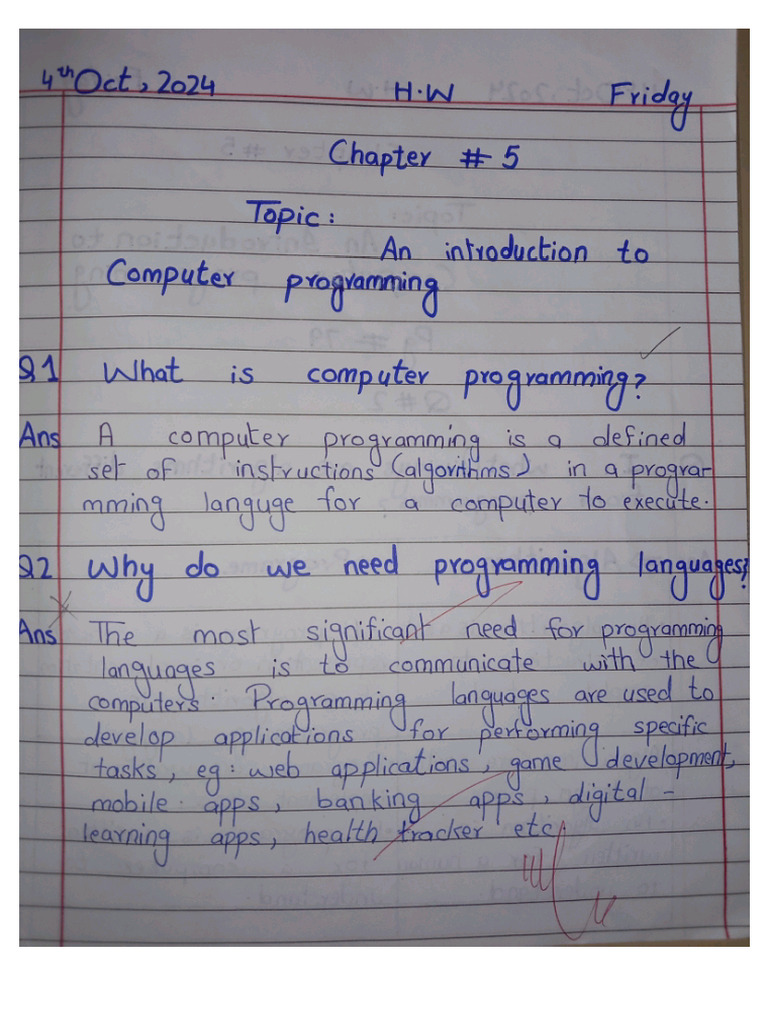 4th Oct, 2024 H.W Friday
Chapter # 5
Topic:
An introduction to
Computer programming
Q1 What is computer programming?
Ans A computer programming is a defined
set of instructions (algorithms) in a progra-
mming languge for a computer to execute.
Q2 Why do we need programming languages?
Ans The most significant need for programming
languages is to communicate with the
computers. Programming languages are used to
develop applications for performing specific
tasks, eg: web applications, game development,
mobile apps, banking apps, digital -
learning apps, health tracker etc